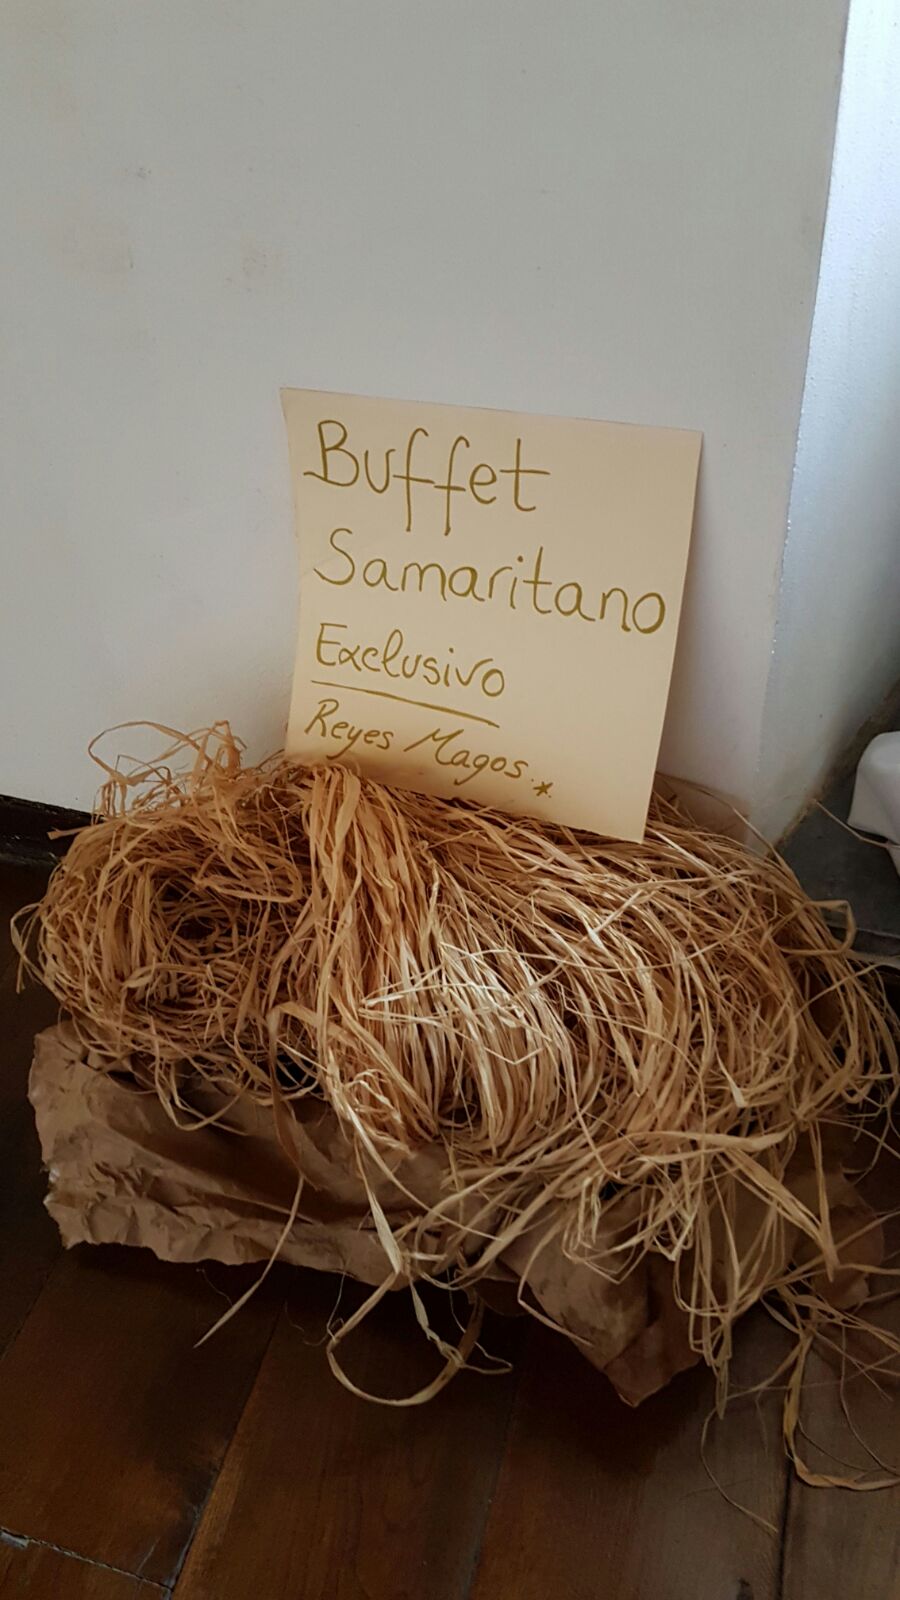 Buffet
Samaritano
Exclusivo
Reyes Magos..*